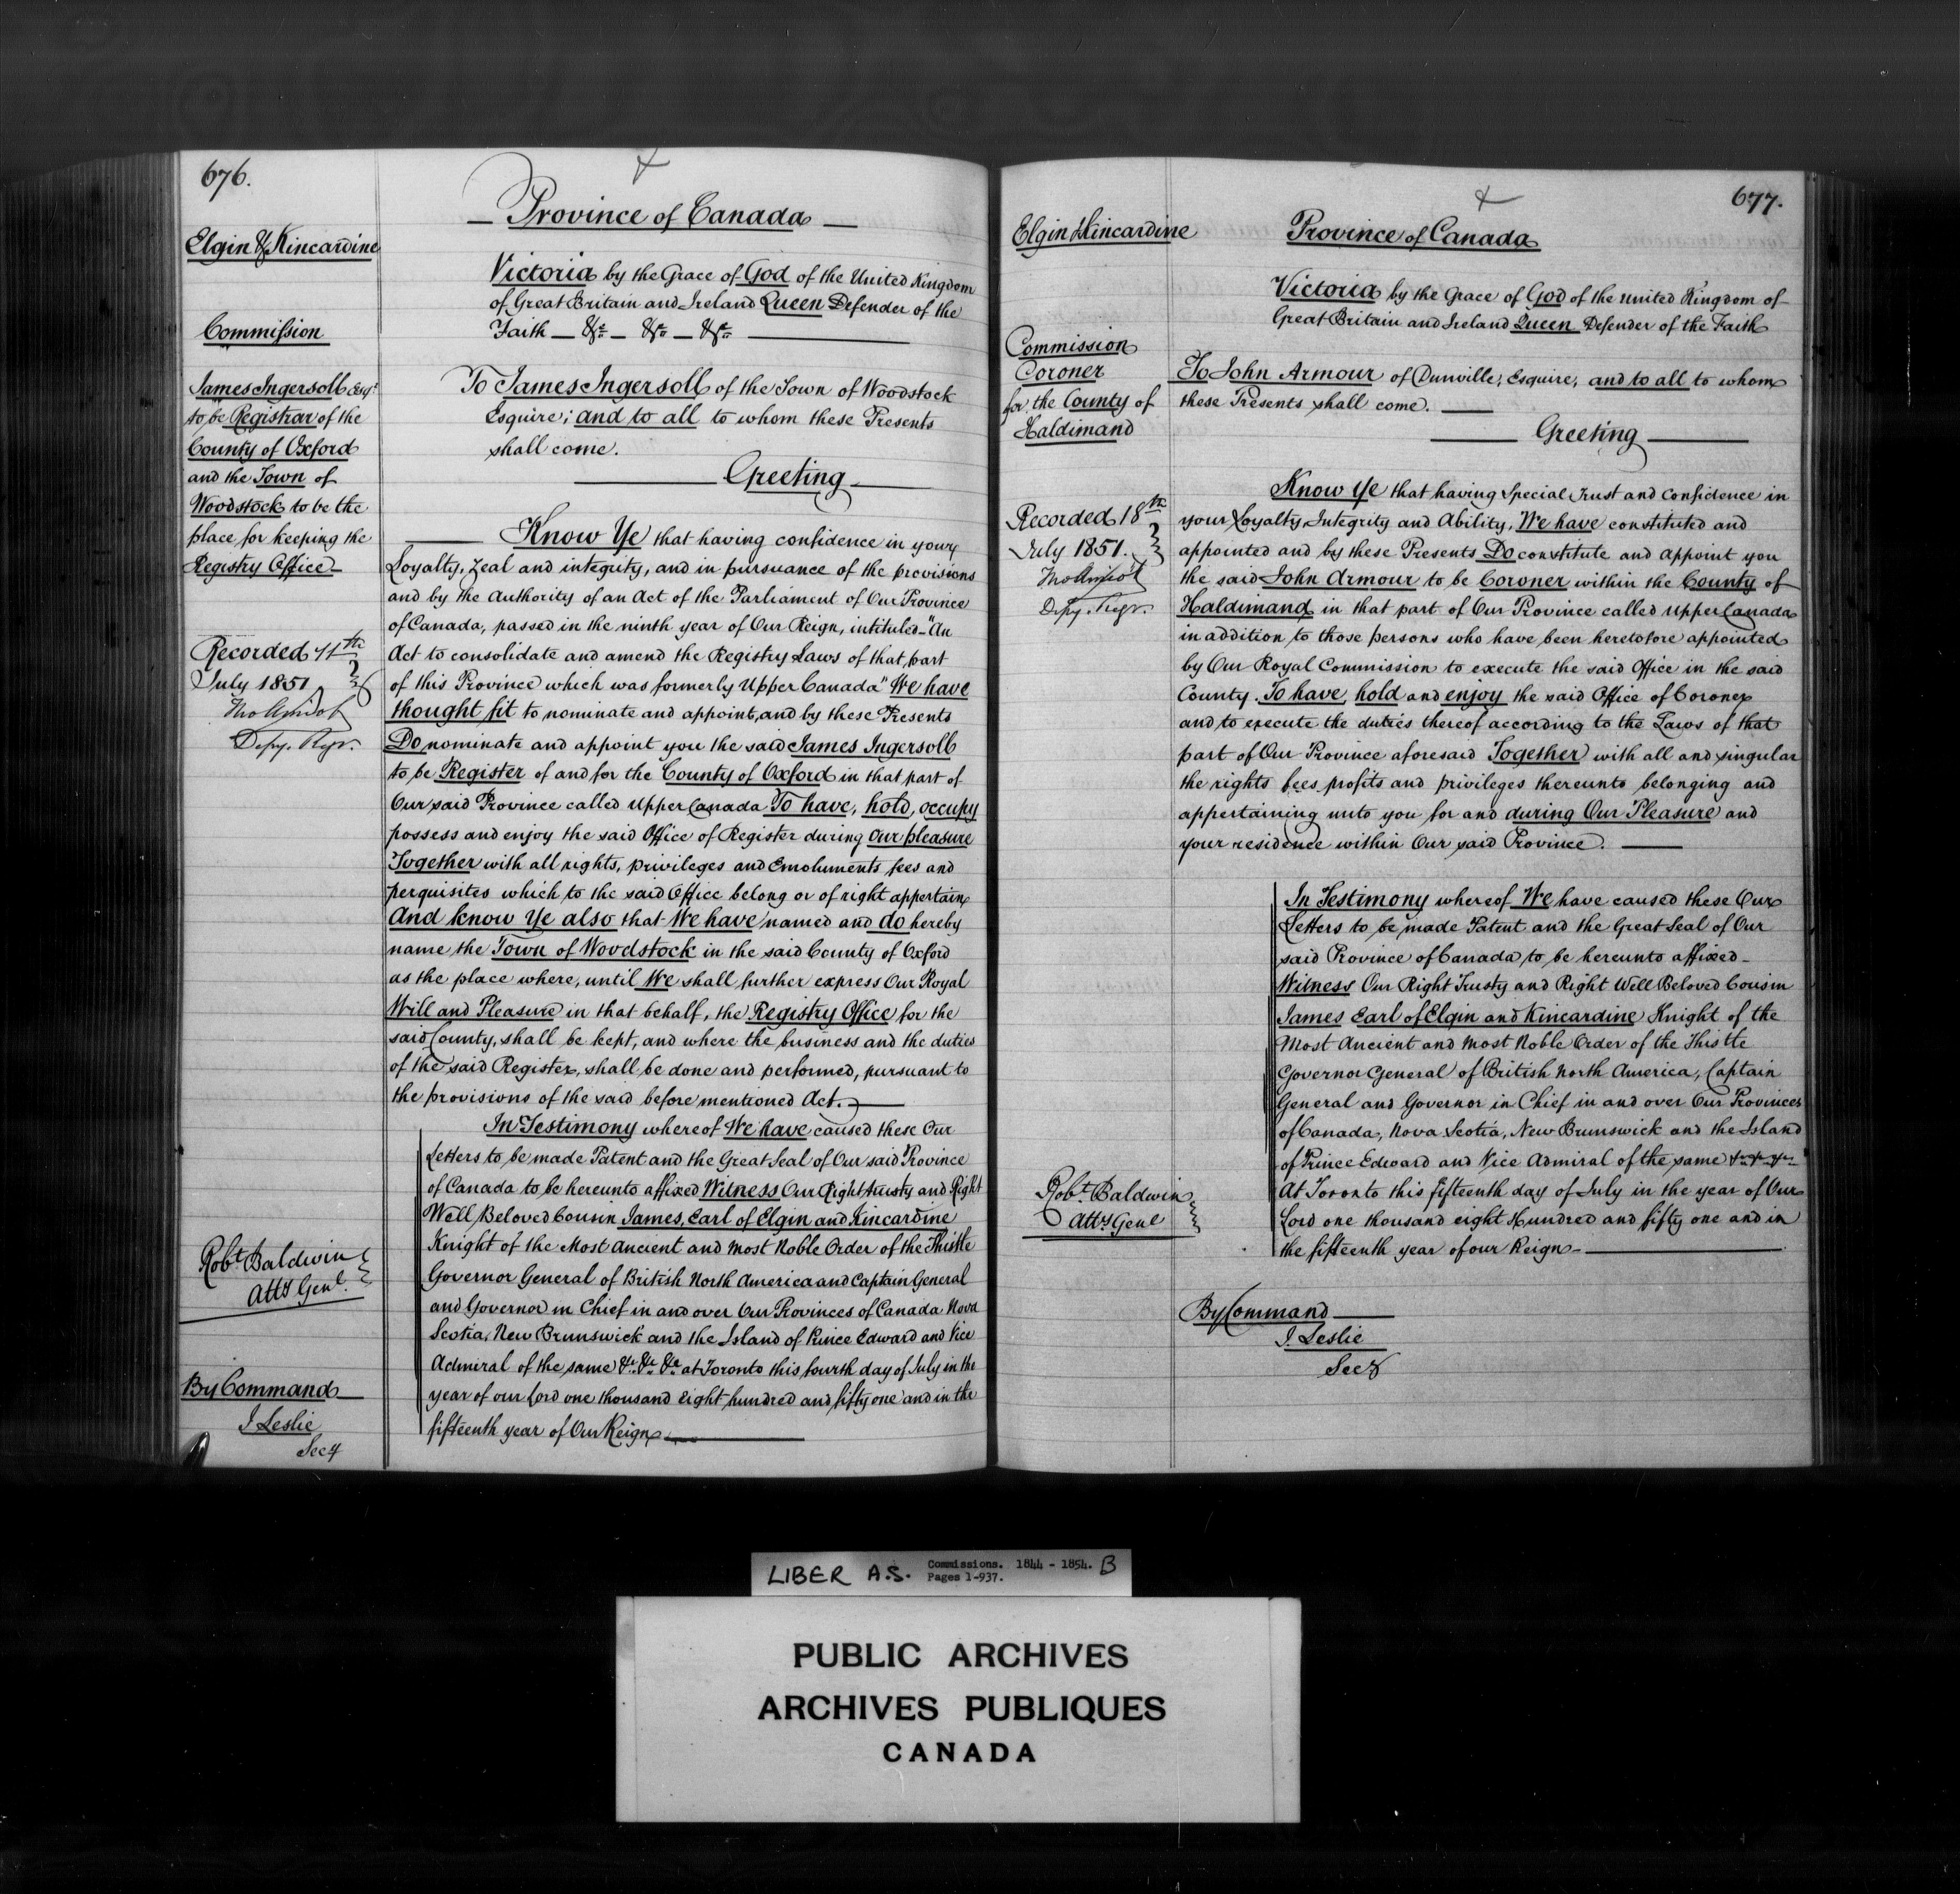 676.
Elgin & Kincardine
Commission
James Ingersoll Esqr
to be Registrar of the
County of Oxford
and the Town of
Woodstock to be the
place for keeping the
Registry Office
Recorded 11th
July 1851
Depy. Regr.
Robt Baldwin
Atty Genl.
By Command
J Leslie
Secy
Province of Canada
Victoria by the Grace of God of the United Kingdom
of Great Britain and Ireland Queen Defender of the
Faith — &c — &c — &c
To James Ingersoll of the Town of Woodstock
Esquire; and to all to whom these Presents
shall come.
Greeting
Know Ye that having confidence in your
Loyalty, Zeal and integrity, and in pursuance of the provisions
and by the Authority of an Act of the Parliament of Our Province
of Canada, passed in the ninth year of Our Reign, intituled "An
Act to consolidate and amend the Registry Laws of that part
of this Province which was formerly Upper Canada" We have
thought fit to nominate and appoint, and by these Presents
Do nominate and appoint you the said James Ingersoll
to be Register of and for the County of Oxford in that part of
Our said Province called Upper Canada To have, hold, occupy
possess and enjoy the said Office of Register during Our pleasure
Together with all rights, privileges and Emoluments fees and
perquisites which to the said Office belong or of right appertain
And know Ye also that We have named and do hereby
name the Town of Woodstock in the said County of Oxford
as the place where, until We shall further express Our Royal
Will and Pleasure in that behalf, the Registry Office for the
said County, shall be kept, and where the business and the duties
of the said Register, shall be done and performed, pursuant to
the provisions of the said before mentioned Act.
In Testimony whereof We have caused these Our
Letters to be made Patent and the Great Seal of Our said Province
of Canada to be hereunto affixed Witness Our Right trusty and Right
Well Beloved Cousin James, Earl of Elgin and Kincardine
Knight of the Most Ancient and Most Noble Order of the Thistle
Governor General of British North America and Captain General
and Governor in Chief in and over Our Provinces of Canada Nova
Scotia, New Brunswick and the Island of Prince Edward and Vice
Admiral of the same &c &c &c at Toronto this fourth day of July in the
year of our Lord one thousand Eight hundred and fifty one and in the
fifteenth year of Our Reign
677.
Elgin & Kincardine
Commission
Coroner
for the County of
Haldimand
Recorded 18th
July 1851.
Depy. Regr.
Robt Baldwin
Atty Genl
Province of Canada
Victoria by the Grace of God of the United Kingdom of
Great Britain and Ireland Queen Defender of the Faith
To John Armour of Dunville, Esquire, and to all to whom
these Presents shall come.
Greeting
Know Ye that having Special Trust and Confidence in
your Loyalty, Integrity and Ability, We have constituted and
appointed and by these Presents Do constitute and appoint you
the said John Armour to be Coroner within the County of
Haldimand in that part of Our Province called Upper Canada
in addition to those persons who have been heretofore appointed
by Our Royal Commission to execute the said Office in the said
County. To have, hold and enjoy the said Office of Coroner
and to execute the duties thereof according to the Laws of that
part of Our Province aforesaid Together with all and singular
the rights fees profits and privileges thereunto belonging and
appertaining unto you for and during Our Pleasure and
your residence within Our said Province.
In Testimony whereof We have caused these Our
Letters to be made Patent and the Great Seal of Our
said Province of Canada to be hereunto affixed
Witness Our Right Trusty and Right Well Beloved Cousin
James Earl of Elgin and Kincardine Knight of the
Most Ancient and Most Noble Order of the Thistle
Governor General of British North America, Captain
General and Governor in Chief in and over Our Provinces
of Canada, Nova Scotia, New Brunswick and the Island
of Prince Edward and Vice Admiral of the same &c &c &c
At Toronto this fifteenth day of July in the year of Our
Lord one thousand eight Hundred and fifty one and in
the fifteenth year of our Reign
By Command
J. Leslie
Secy
LIBER A.S. Commissions. 1844 - 1854. B
Pages 1-937.
PUBLIC ARCHIVES
ARCHIVES PUBLIQUES
CANADA